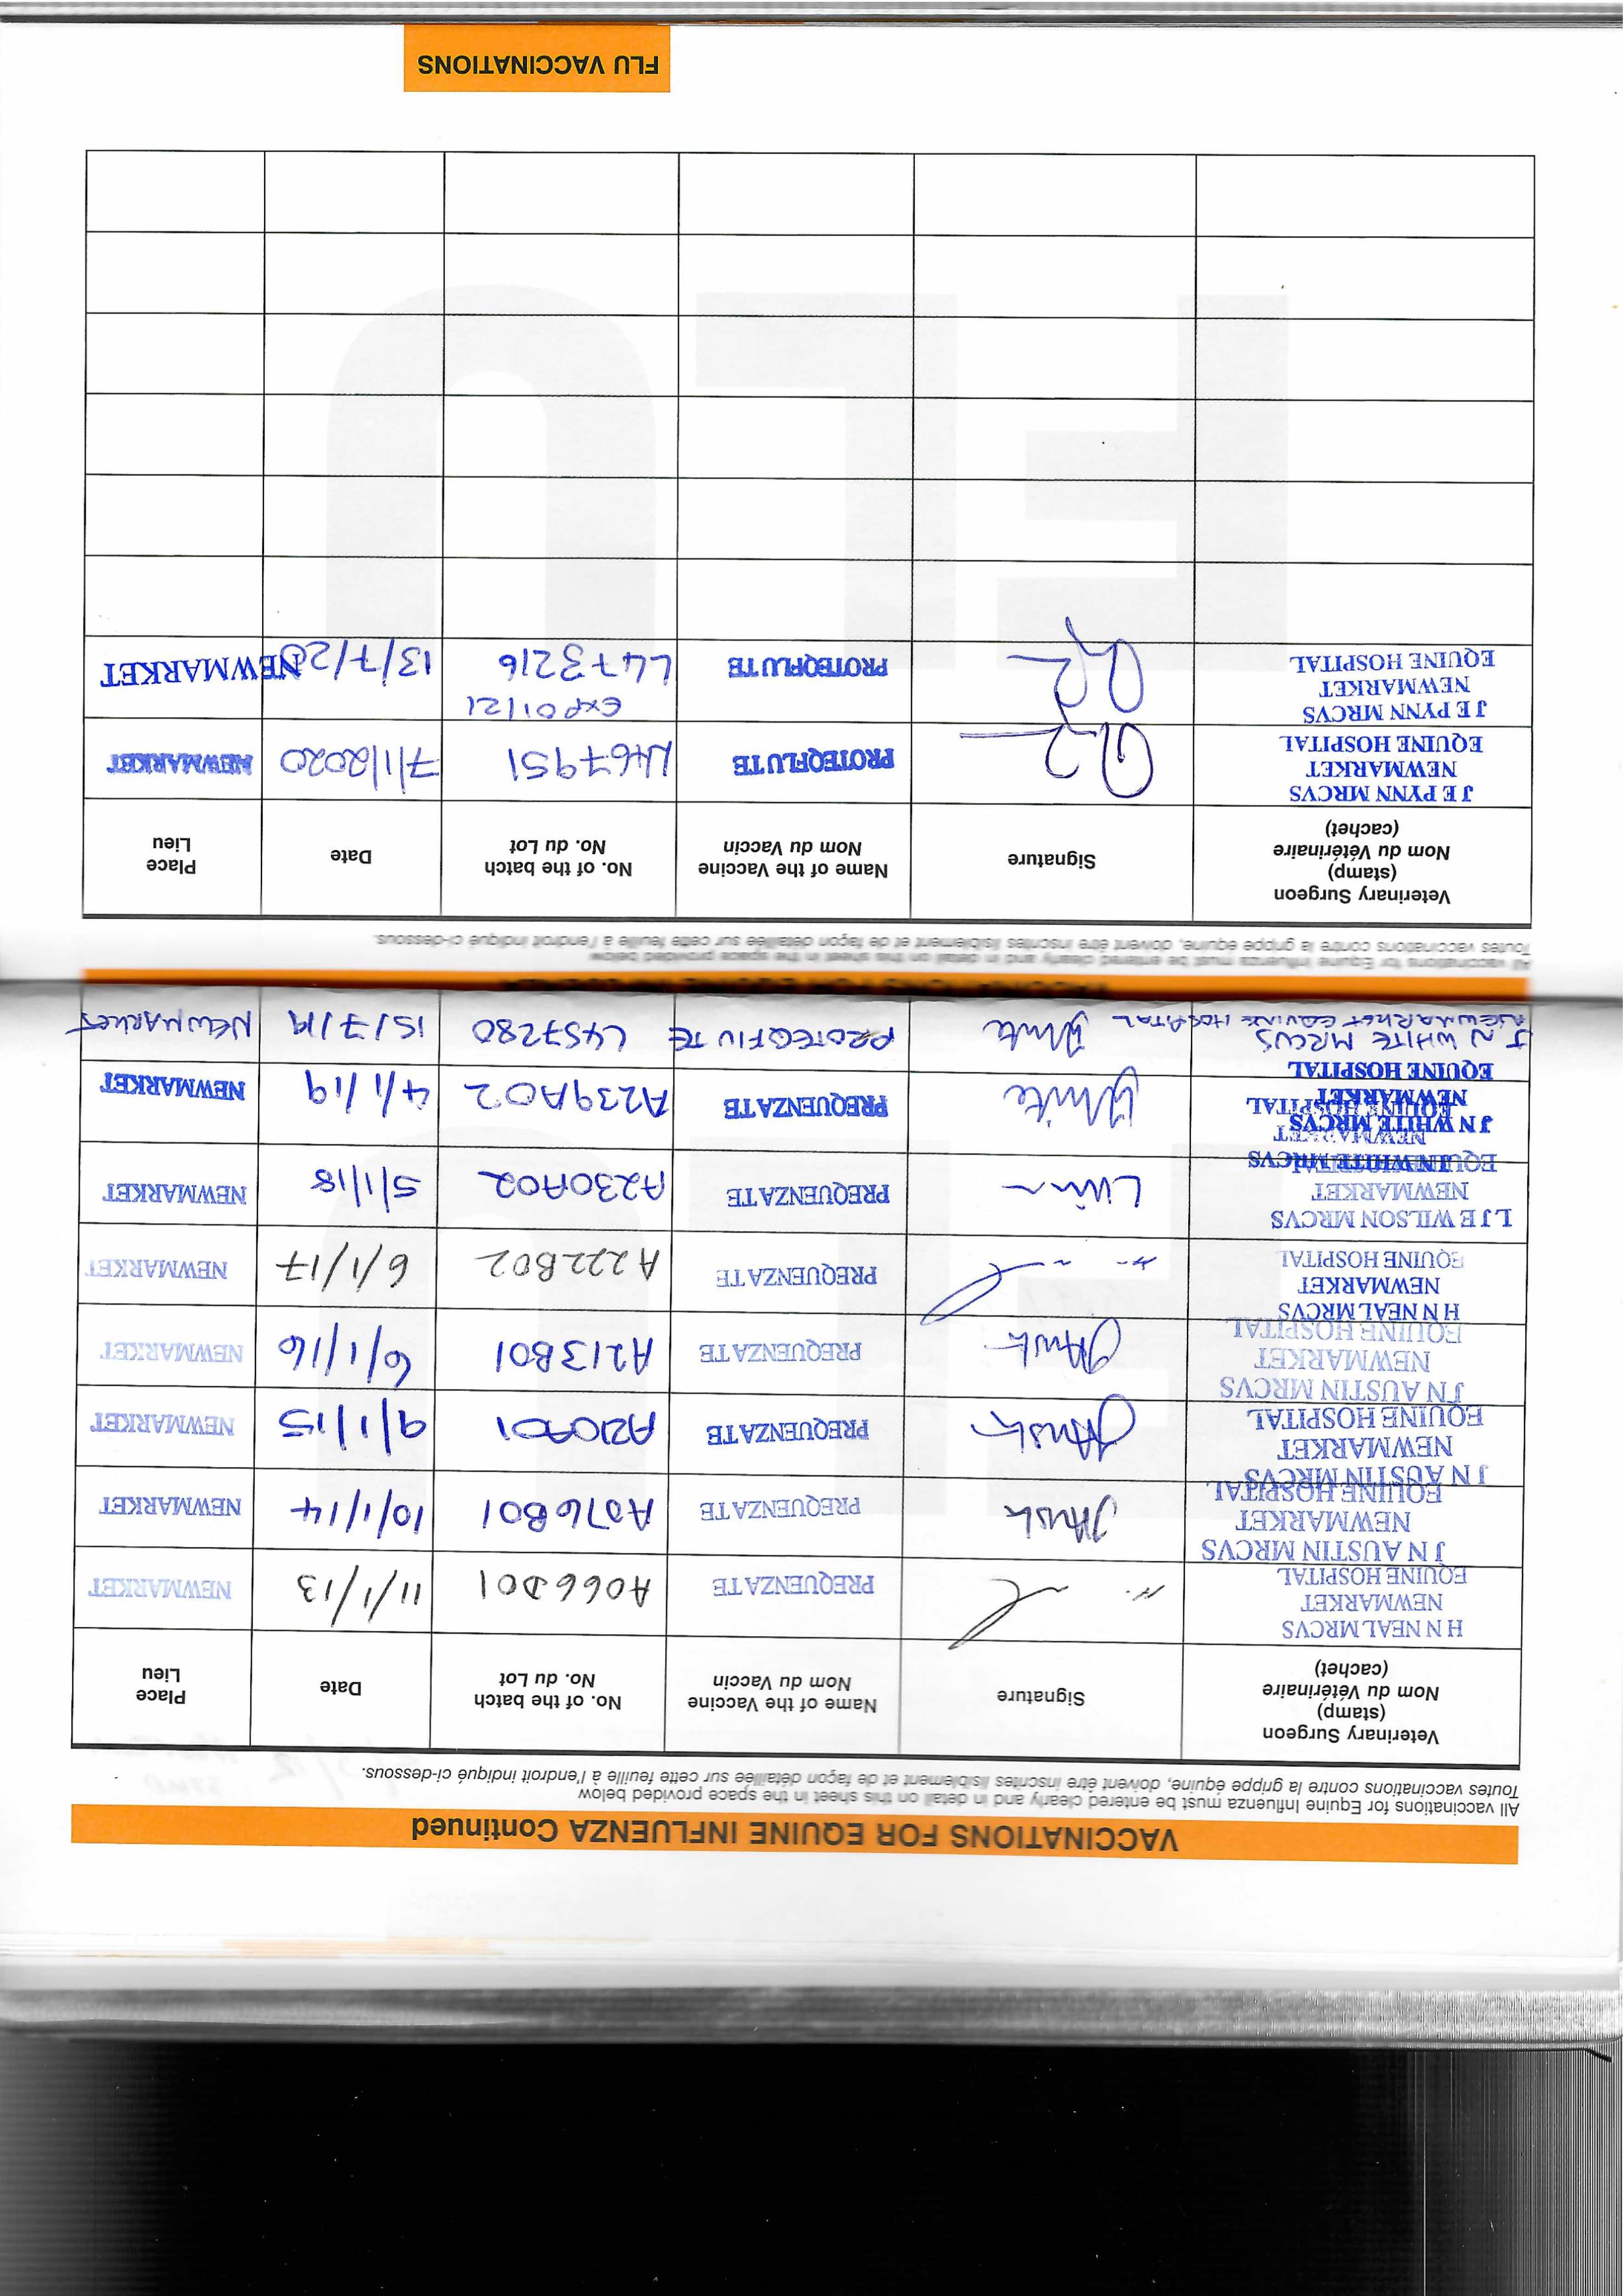 VACCINATIONS FOR EQUINE INFLUENZA Continued
All vaccinations for Equine Influenza must be entered clearly and in detail on this sheet in the space provided below
Toutes vaccinations contre la grippe équine, doivent être inscrites lisiblement et de façon détaillée sur cette feuille à l'endroit indiqué ci-dessous.
Place
Lieu
Date
No. of the batch
No. du Lot
Name of the Vaccine
Nom du Vaccin
Signature
Veterinary Surgeon
(stamp)
Nom du Vétérinaire
(cachet)
NEWMARKET 11/1/13 A066D01 PREQUENZA TE
H N NEAL MRCVS
NEWMARKET
EQUINE HOSPITAL
NEWMARKET 10/1/14 A076B01 PREQUENZA TE
J N AUSTIN MRCVS
NEWMARKET
EQUINE HOSPITAL
NEWMARKET 9/1/15 A210A01 PREQUENZA TE
J N AUSTIN MRCVS
NEWMARKET
EQUINE HOSPITAL
NEWMARKET 6/1/16 A213B01 PREQUENZA TE
J N AUSTIN MRCVS
NEWMARKET
EQUINE HOSPITAL
NEWMARKET 6/1/17 A222B02 PREQUENZA TE
H N NEAL MRCVS
NEWMARKET
EQUINE HOSPITAL
NEWMARKET 5/1/18 A230A02 PREQUENZA TE
L J E WILSON MRCVS
NEWMARKET
EQUINE HOSPITAL
NEWMARKET 4/1/19 A239A02 PREQUENZA TE White
J N WHITE MRCVS
NEWMARKET
EQUINE HOSPITAL
J N WHITE MRCVS
NEWMARKET
EQUINE HOSPITAL
NEWMARKET 15/7/19 L457280 PROTEQFLU TE White
J N WHITE MRCVS
NEWMARKET EQUINE HOSPITAL
All vaccinations for Equine Influenza must be entered clearly and in detail on this sheet in the space provided below
Toutes vaccinations contre la grippe équine, doivent être inscrites lisiblement et de façon détaillée sur cette feuille à l'endroit indiqué ci-dessous.
Place
Lieu
Date
No. of the batch
No. du Lot
Name of the Vaccine
Nom du Vaccin
Signature
Veterinary Surgeon
(stamp)
Nom du Vétérinaire
(cachet)
NEWMARKET 7/1/2020 L467951 PROTEQFLU TE
J E PYNN MRCVS
NEWMARKET
EQUINE HOSPITAL
EXP 01/21
NEWMARKET 13/7/20 L473216 PROTEQFLU TE
J E PYNN MRCVS
NEWMARKET
EQUINE HOSPITAL
FLU
FLU
FLU VACCINATIONS